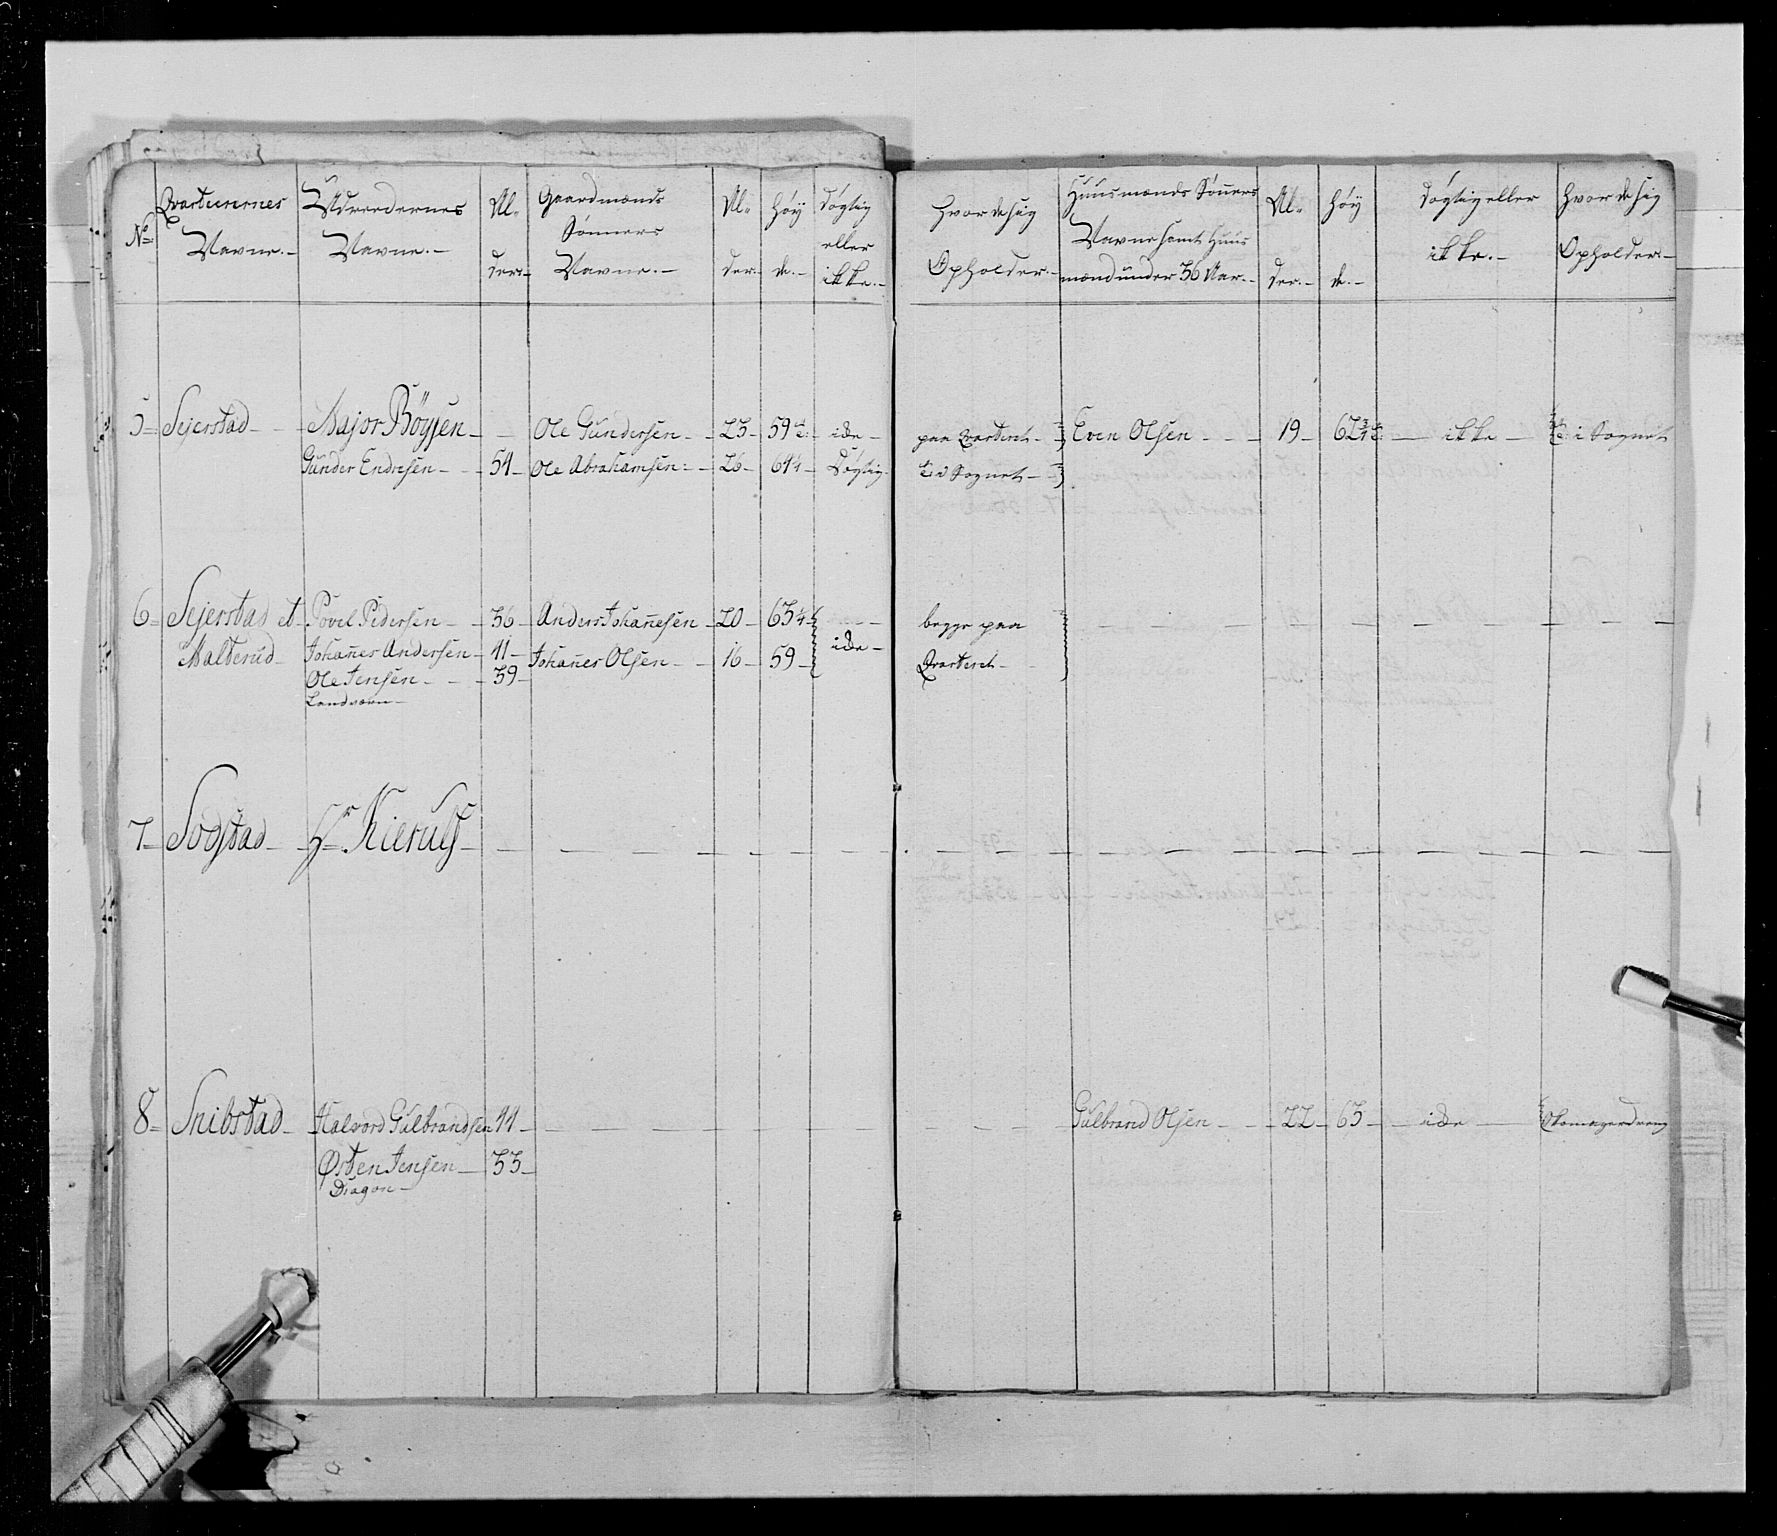 No Qvarterernes Navne.- Udreedernes Navne.- Al- der.- Gaardmænds Sønners Navne.- Al- der.- Høy de.- Døgtig eller ikke.- Hvor de sig Opholder.- Huusmænds Sønners Navne samt Huus mænd under 36 Aar.- Al- der.- Høy de.- Døgtig eller ikke.- Hvor de sig Opholder.-
5 Sejerstad - Major Böysen - - Ole Gundersen - 23 - 59 - paa Qvarteret - Even Olsen - 19 - 62 3/4 - ikke - i Sognet
Gunder Endresen - 54 - Ole Abrahamsen - 26 - 64 1/4 - Døgtig - i Sognet -
6 Sejerstad et Povel Pedersen - 36 - Anders Johañesen - 20 - 63 1/4 - begge paa
Malterud - Johañes Andersen - 41 - Johañes Olsen - 16 - 59 - Qvarteret -
Ole Jensen - 39 -
Landværn -
7 Sogstad - Hr Kierulf -
8 Snibstad - Halvord Gulbrandsen 44 - Gulbrand Olsen - 22 - 63 - Skomagerdreng
Østen Jensen - 33 -
Dragon -